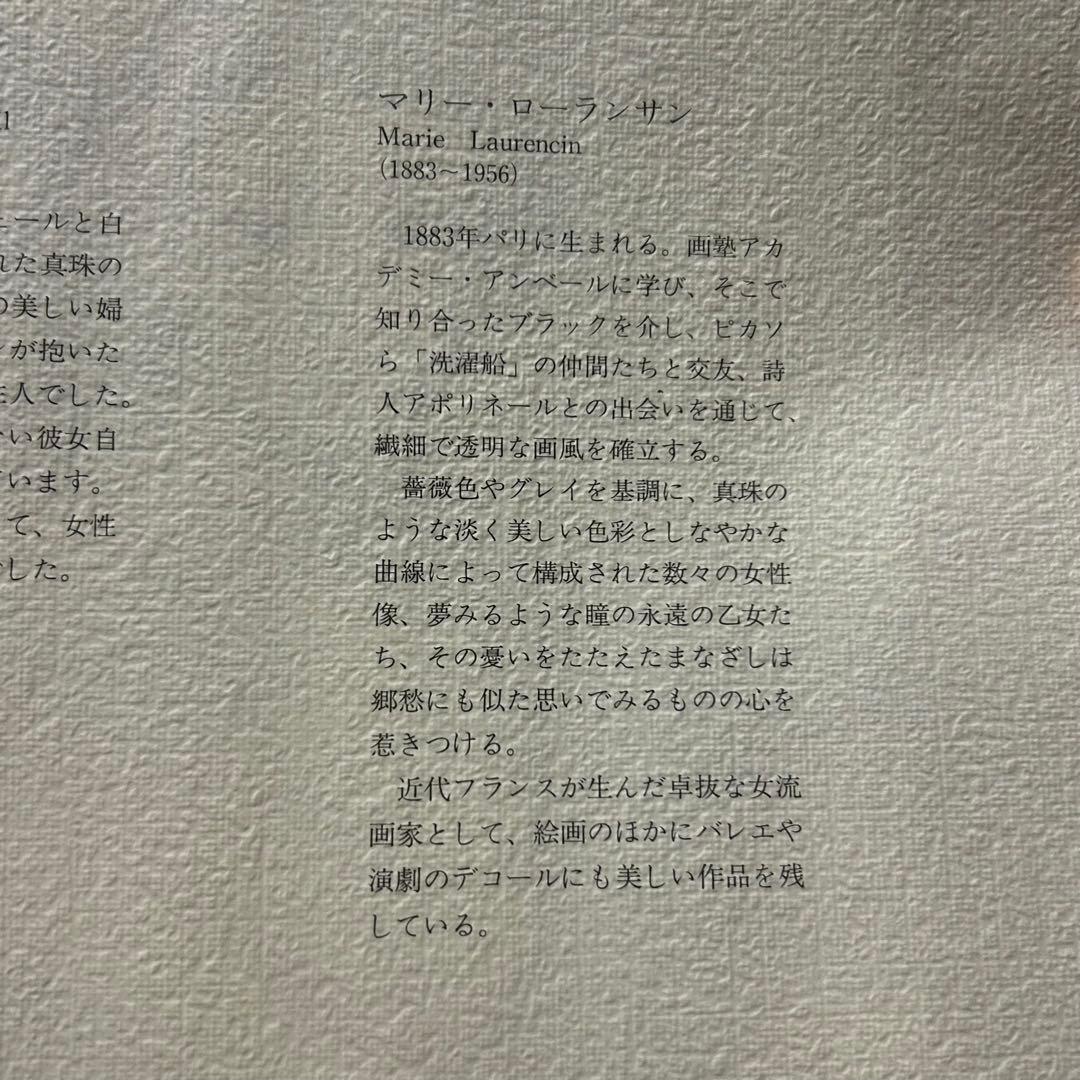 ールと白
れた真珠の
の美しい婦
が抱いた
人でした。
い彼女自
います。
て、女性
した。
マリー・ローランサン
Marie Laurencin
(1883〜1956)
1883年パリに生まれる。画塾アカ
デミー・アンベールに学び、そこで
知り合ったブラックを介し、ピカソ
ら「洗濯船」の仲間たちと交友、詩
人アポリネールとの出会いを通じて、
繊細で透明な画風を確立する。
薔薇色やグレイを基調に、真珠の
ような淡く美しい色彩としなやかな
曲線によって構成された数々の女性
像、夢みるような瞳の永遠の乙女た
ち、その憂いをたたえたまなざしは
郷愁にも似た思いでみるものの心を
惹きつける。
近代フランスが生んだ卓抜な女流
画家として、絵画のほかにバレエや
演劇のデコールにも美しい作品を残
している。